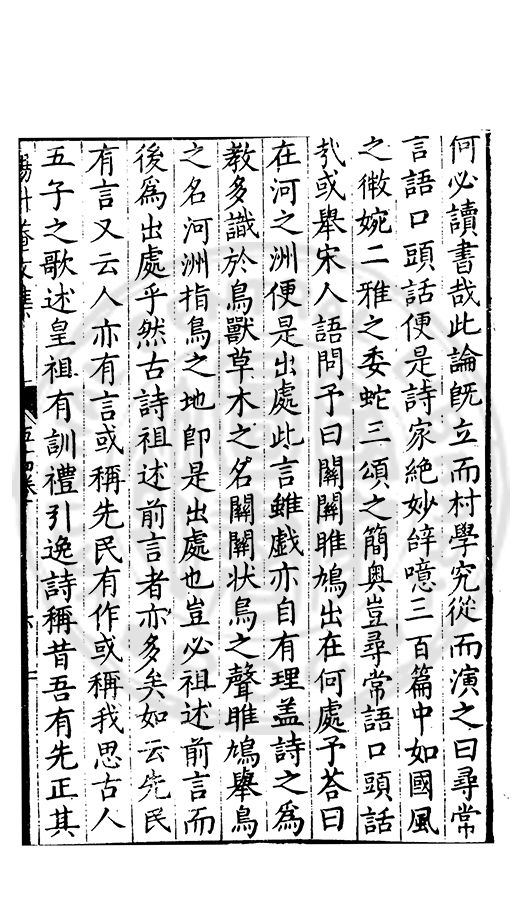 何必讀書哉此論旣立而村學究從而演之曰尋常
言語口頭話便是詩家絶妙辝噫三百篇中如國風
之微婉二雅之委蛇三頌之簡奥豈尋常語口頭話
㢤或舉宋人語問予曰關關雎鳩出在何處予荅曰
在河之洲便是出處此言雖戯亦自有理盖詩之爲
教多識於鳥獸草木之名關關状鳥之聲雎鳩舉鳥
之名河洲指鳥之地卽是出處也豈必祖述前言而
後爲出處乎然古詩祖述前言者亦多矣如云先民
有言又云人亦有言或稱先民有作或稱我思古人
五子之歌述皇祖有訓禮引逸詩稱昔吾有先正其